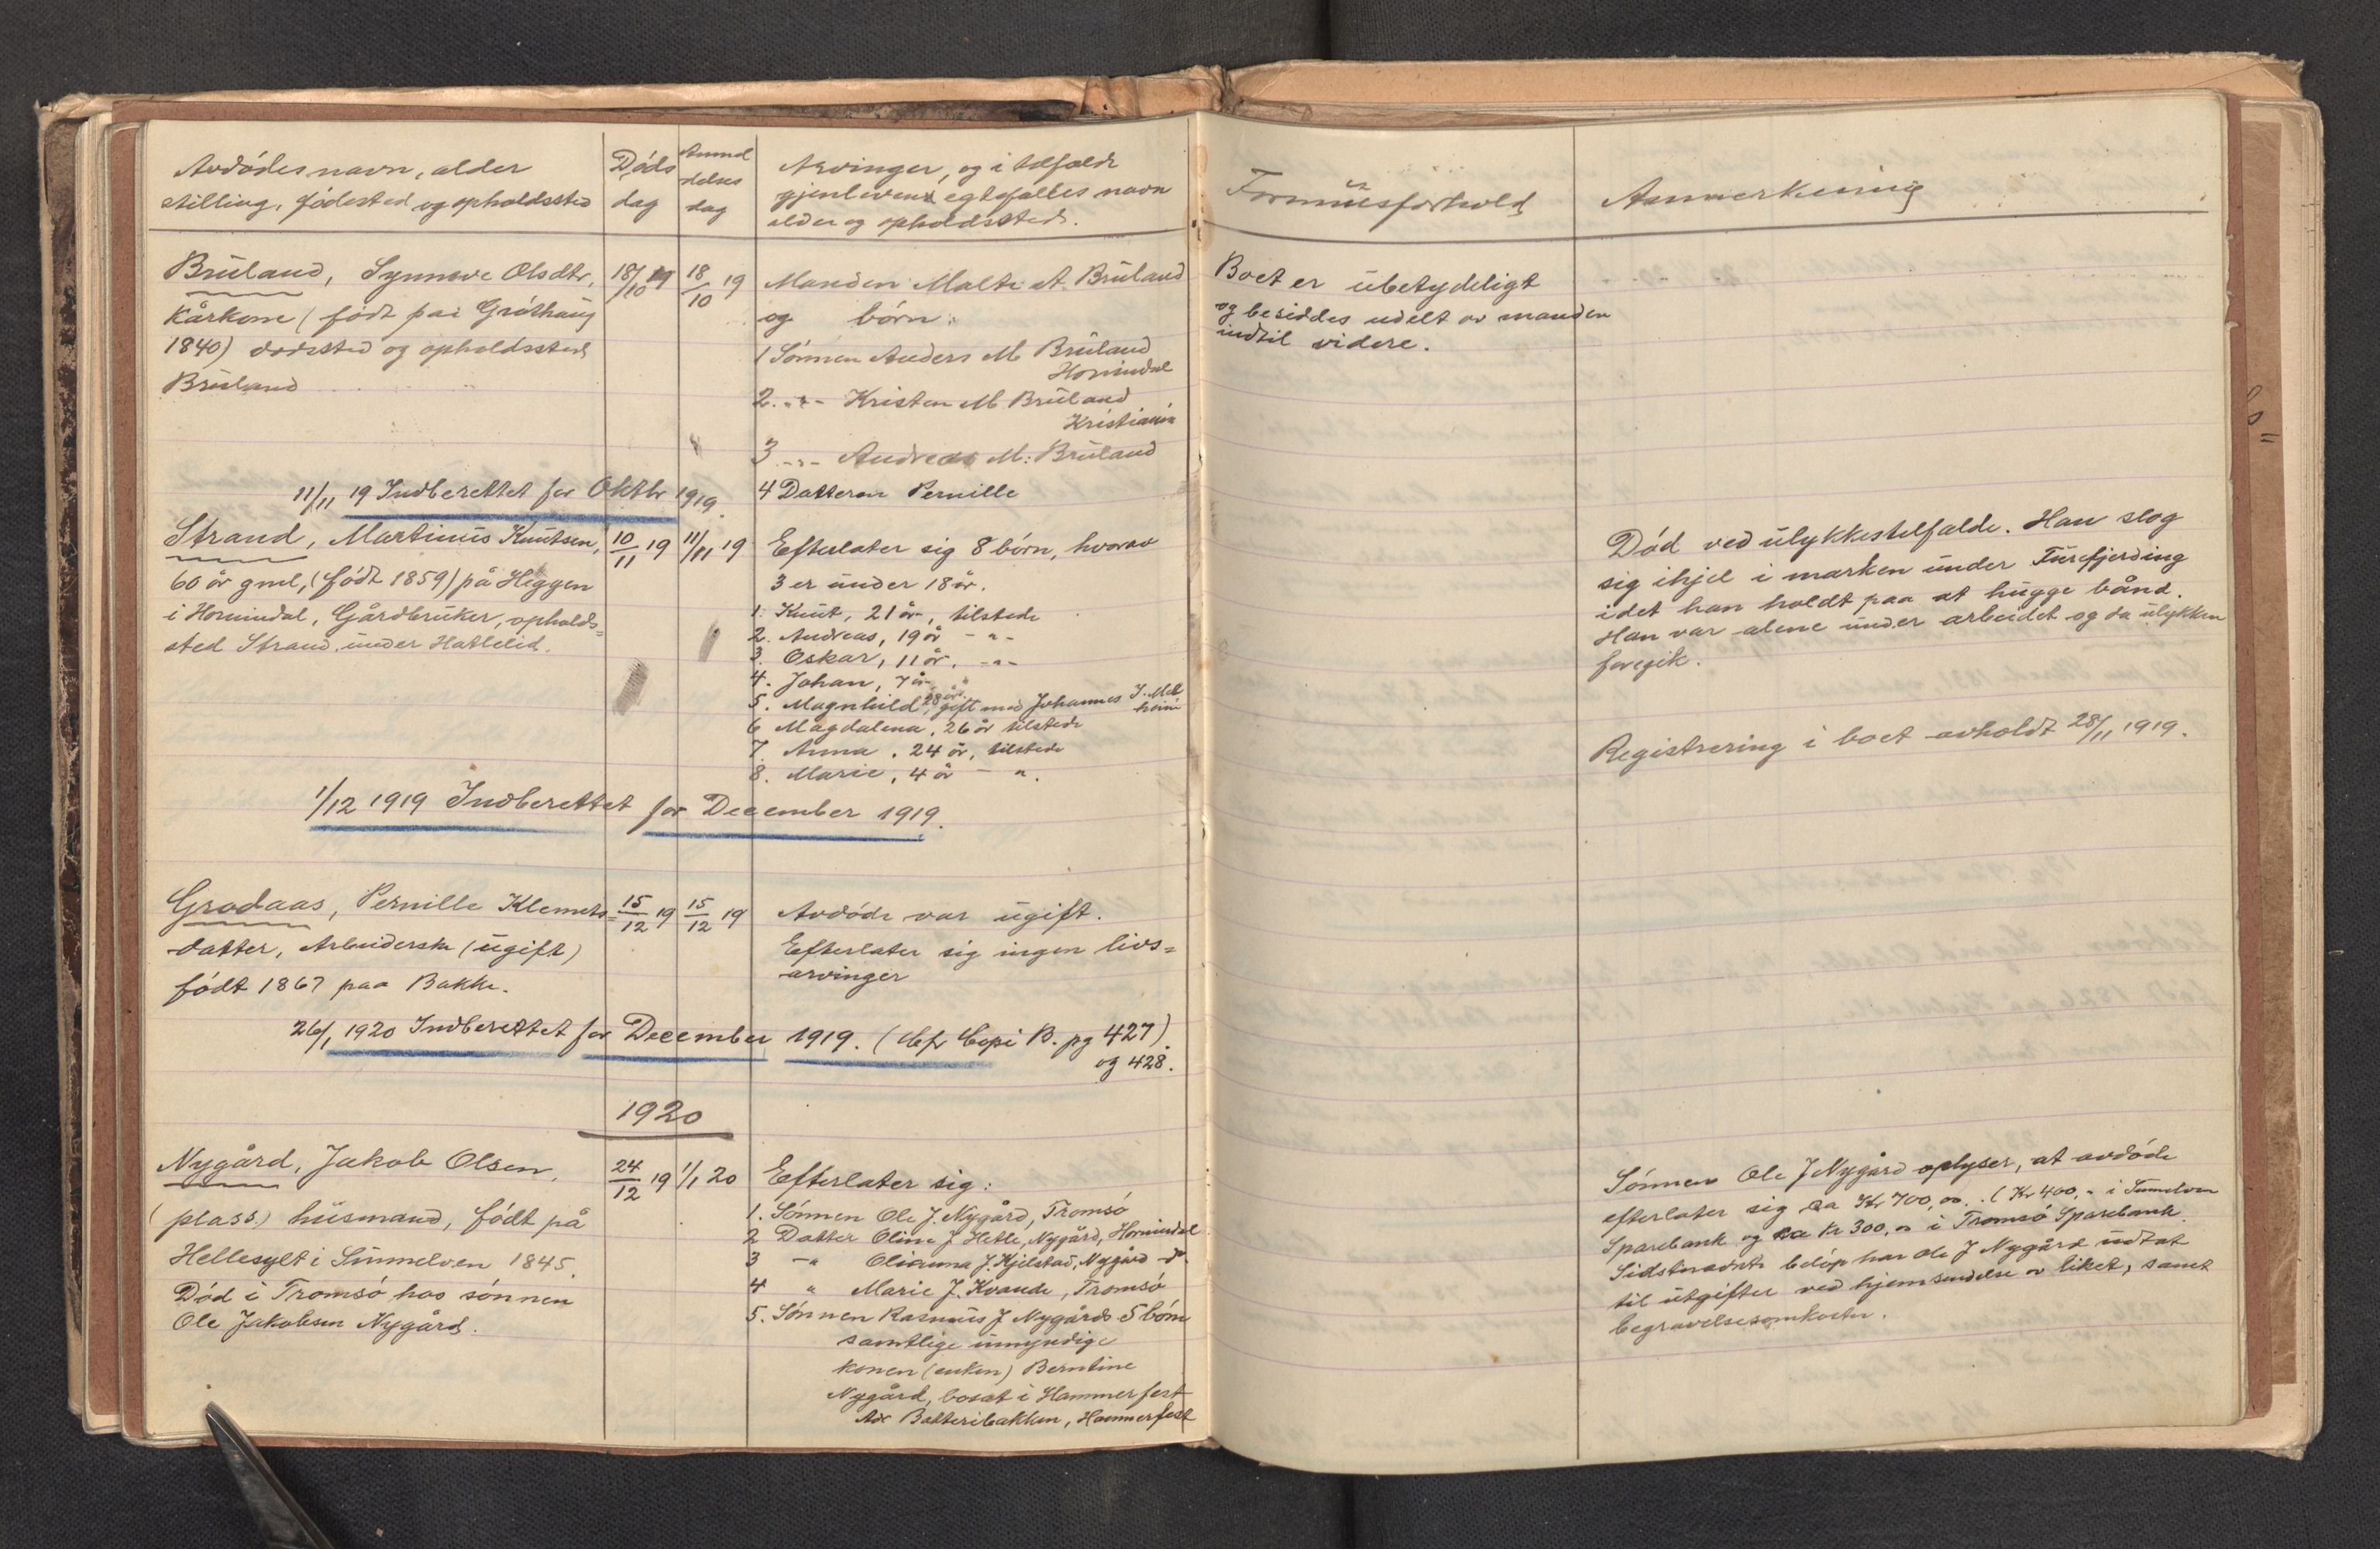 Avdødes navn, alder
stilling, fødested og opholdssted
Døds
dag
Anmel
delses
dag
Arvinger, og i tilfælde
gjenlevend egtefælles navn
alder og opholdssted.
Formuesforhold
Anmerkning
Brüland, Synnøve Olsdtr,
Kårkone (født paa Grøthaug
1840) dødssted og opholdssted
Brüland
18/10 19
18/10 19
Manden Malte A. Brüland
og børn:
1 Sønnen Anders M Brüland
Hornindal
2. -"- Kristen M Brüland
Kristiania
3 -"- Andreas M. Brüland
4 Datteren Pernille
Boet er übetydeligt
og besiddes udelt av manden
indtil videre.
11/11 19 Indberettet for Oktbr 1919.
Strand, Martinüs Knütsen,
60 år gml, (født 1859) på Heggen
i Hornindal, Gårdbrüker, opholds=
sted Strand ünder Hatlelid.
10/11 19
11/11 19
Efterlater sig 8 børn, hvorav
3 er ünder 18 år.
1. Knüt, 21 år, tilstede
2. Andreas, 19 år - " -
3. Oskar, 11 år, - " -
4. Johan, 7 år "
5. Magnhild, 28 år, gift med Johannes J. Mel
heim
6 Magdalena, 26 år tilstede
7. Anna, 24 år, tilstede
8. Marie, 4 år - ".
Død ved ülykkestilfælde. Han slog
sig ihjel i marken ünder Türefjerding
idet han holdt paa at hügge bånd.
Han var alene ünder arbeidet og da ülykken
foregik.
Registrering i boet avholdt 28/11 1919.
1/12 1919 Indberettet for December 1919.
Grodaas, Pernille Klemets=
datter, Arbeiderske (ügift)
født 1867 paa Bakke.
15/12 19
15/12 19
Avdøde var ügift.
Efterlater sig ingen livs=
arvinger
26/1 1920 Indberettet for December 1919. (Cfr Copi B. pg 427)
og 428.
1920
Nygård, Jakob Olsen,
(plass.) hüsmand, født på
Hellesylt i Sünnelven 1845.
Død i Tromsø hos sønnen
Ole Jakobsen Nygård.
24/12 19
1/1 20
Efterlater sig:
1. Sønnen Ole J. Nygård, Tromsø
2 Datter Oline J Hetle, Nygård, Hornindal
3 -" Olianna J. Kjelstad, Nygård do
4 " Marie J. Kvande, Tromsø
5. Sønnen Rasmüs J Nygårds 5 børn
samtlige ümyndige
konen (enken) Berntine
Nygård, bosat i Hammerfest
Adr Batteribakken, Hammerfest
Sønnen Ole J Nygård oplyser, at avdøde
efterlater sig ca Kr 700,00. (Kr 400,- i Sunnelven
Sparebank og ca Kr 300,00 i Tromsø Sparebank.
Sidstnævnte beløp har Ole J Nygård üdtat
til ütgifter ved hjemsendelse av liket, samt
begravelsesomkoster.